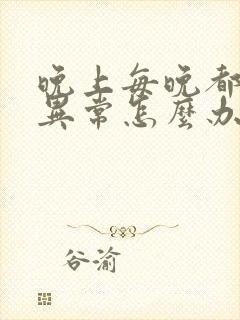 晚上每晚都
異常怎麼办
谷渝